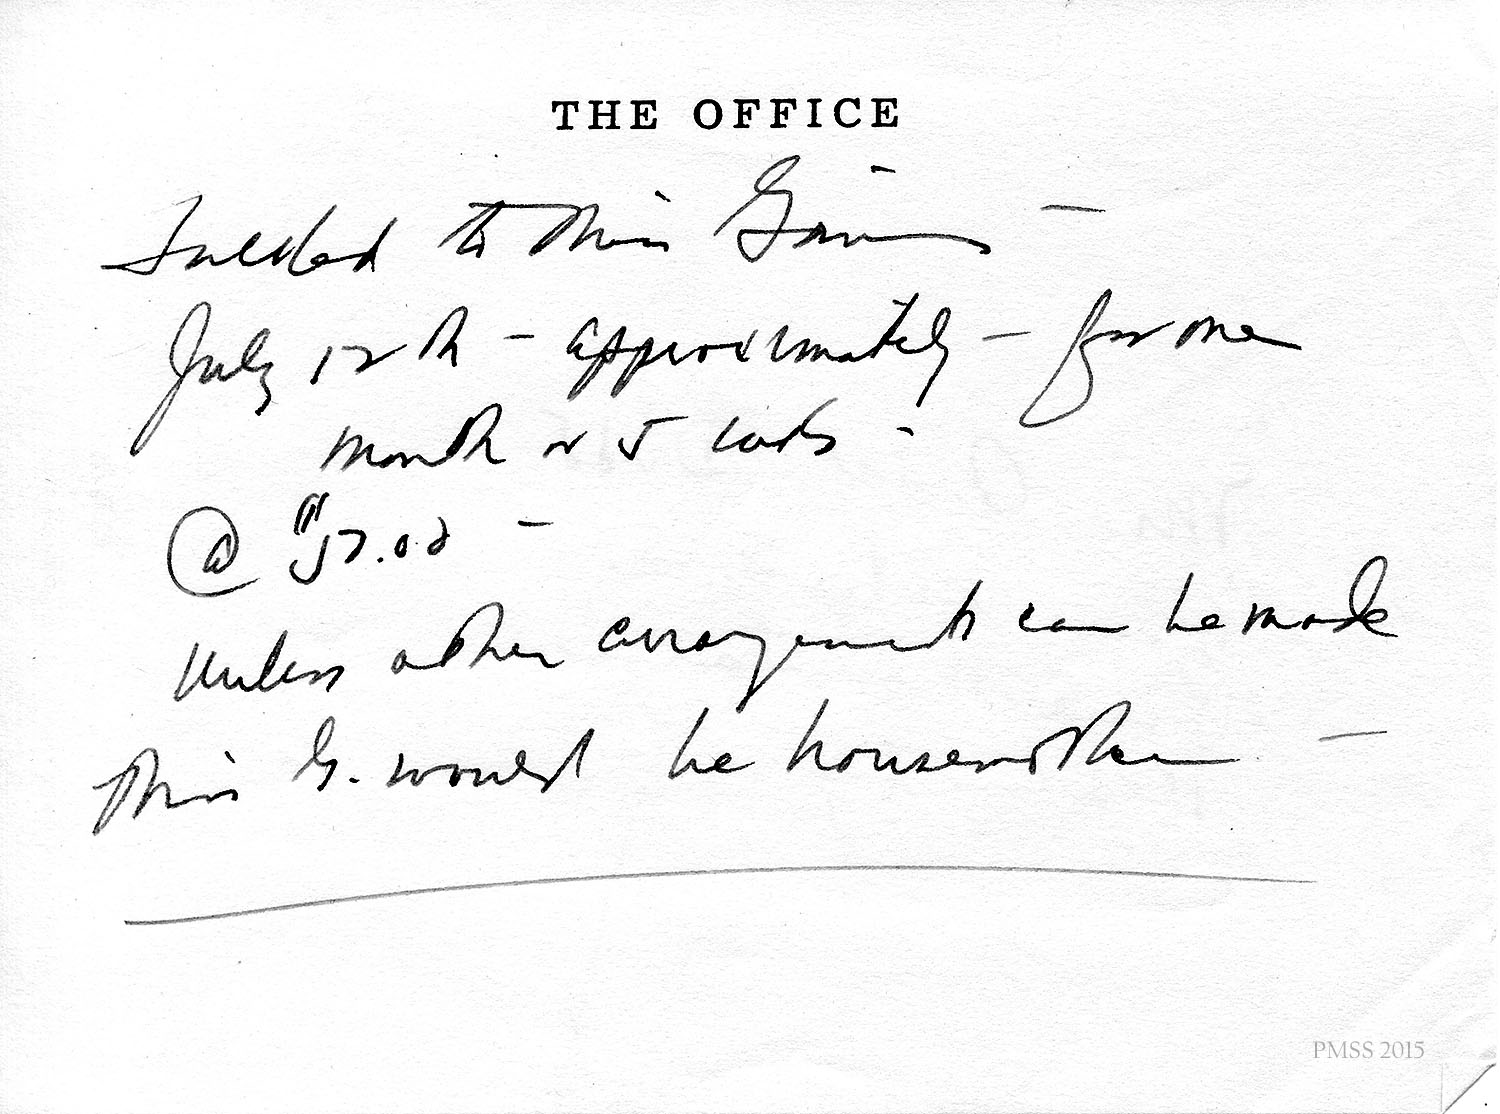 THE OFFICE
to Miss Gaines —
July 12th – approximately – for one
month or 5 wks –
@ $57.00 –
Unless other arrangements can be made
Miss G. would be housemother —
PMSS 2015